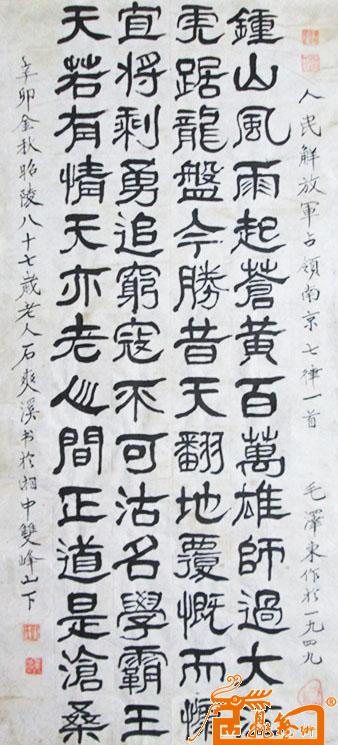 人民解放軍占領南京七律一首 毛澤東作於一九四九
鍾山風雨起蒼黃百萬雄師過大江
虎踞龍盤今勝昔天翻地覆慨而慷
宜將剩勇追窮寇不可沽名學霸王
天若有情天亦老人間正道是滄桑
辛卯金秋昭陵八十七歲老人石爽溪书於湘中雙峰山下